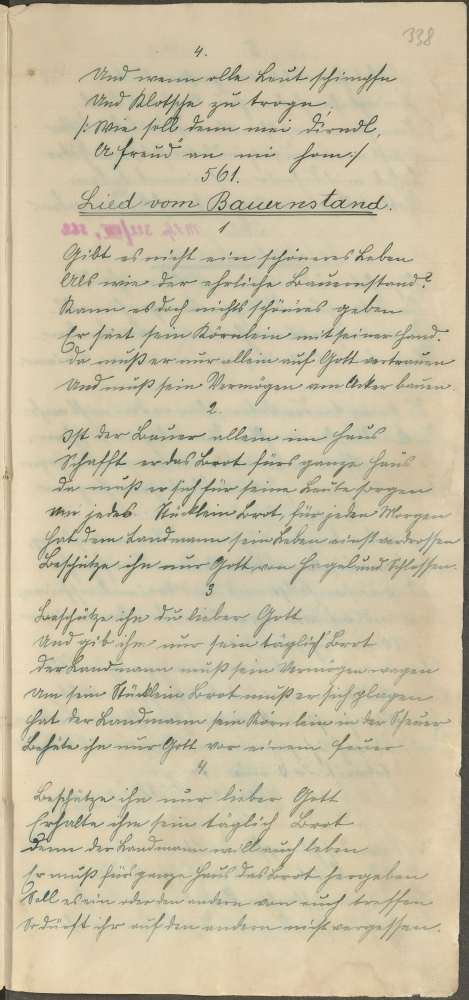 338
4.
Und wenn alle Leut schimpfn
Und Klotsche zu trogn.
/: Wie soll denn mei Dirndl,
A Freud an mi hom :/
561.
Lied vom Bauernstand.
1
Gibt es nicht ein schöneres Leben
Als wie der ehrliche Bauernstand?
Kann es doch nichts schöners geben
Er säet sein Körnlein mit seiner Hand.
Da muß er nur allein auf Gott vertrauen
Und muß sein Vermögen am Acker bauen.
2.
Ist der Bauer allein im Haus
Schafft er das Brot fürs ganze Haus
Da muß er sich für seine Leute sorgen
Um jedes Stücklein Brot, für jeden Morgen
Hat dem Landmann sein Leben einst verdrossen
Beschütze ihn nur Gott, von Hagel und Schlossen.
3
Beschütze ihn du lieber Gott
Und gib ihm nur sein täglich Brot
Der Landmann muß sein Vermögen wagen
Um sein Stücklein Brot muß er sich plagen
Hat der Landmann sein Körnlein in der Scheuer
Behüte ihn nur Gott vor einem Feuer
4.
Beschütze ihn nur lieber Gott
Erhalte ihm sein täglich Brot
Denn der Landmann will auch leben
Er muß fürs ganze Haus das Brot hergeben
Soll es ein oder den andern von euch treffen
So dürft ihr auf den andern nicht vergessen.